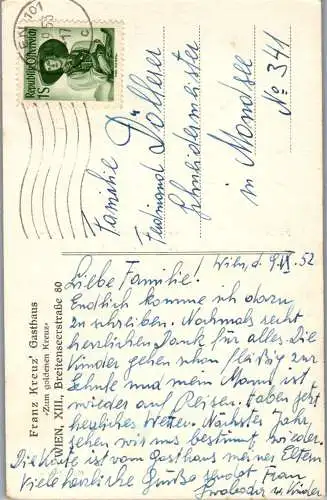 WIEN 101
Republik Österreich
1S
Familie
Ferdinand Döllerer
Schneidermeister
in Mondsee
No 341
Franz Kreuz' Gasthaus
»Zum goldenen Kreuz«
WIEN, XIII., Breitenseerstraße 80
Wien, d. 9. 52
Liebe Familie!
Endlich komme ich dazu
zu schreiben. Nochmals recht
herzlichen Dank für alles. Die
Kinder gehen schon fleißig zur
Schule und mein Mann ist
wieder auf Reisen. Haben jetzt
herrliches Wetter. Nächstes Jahr
sehen wir uns bestimmt wieder.
Die Karte ist vom Gasthaus meiner Eltern
Viele herzliche Grüße sendet Frau
u. Kinder